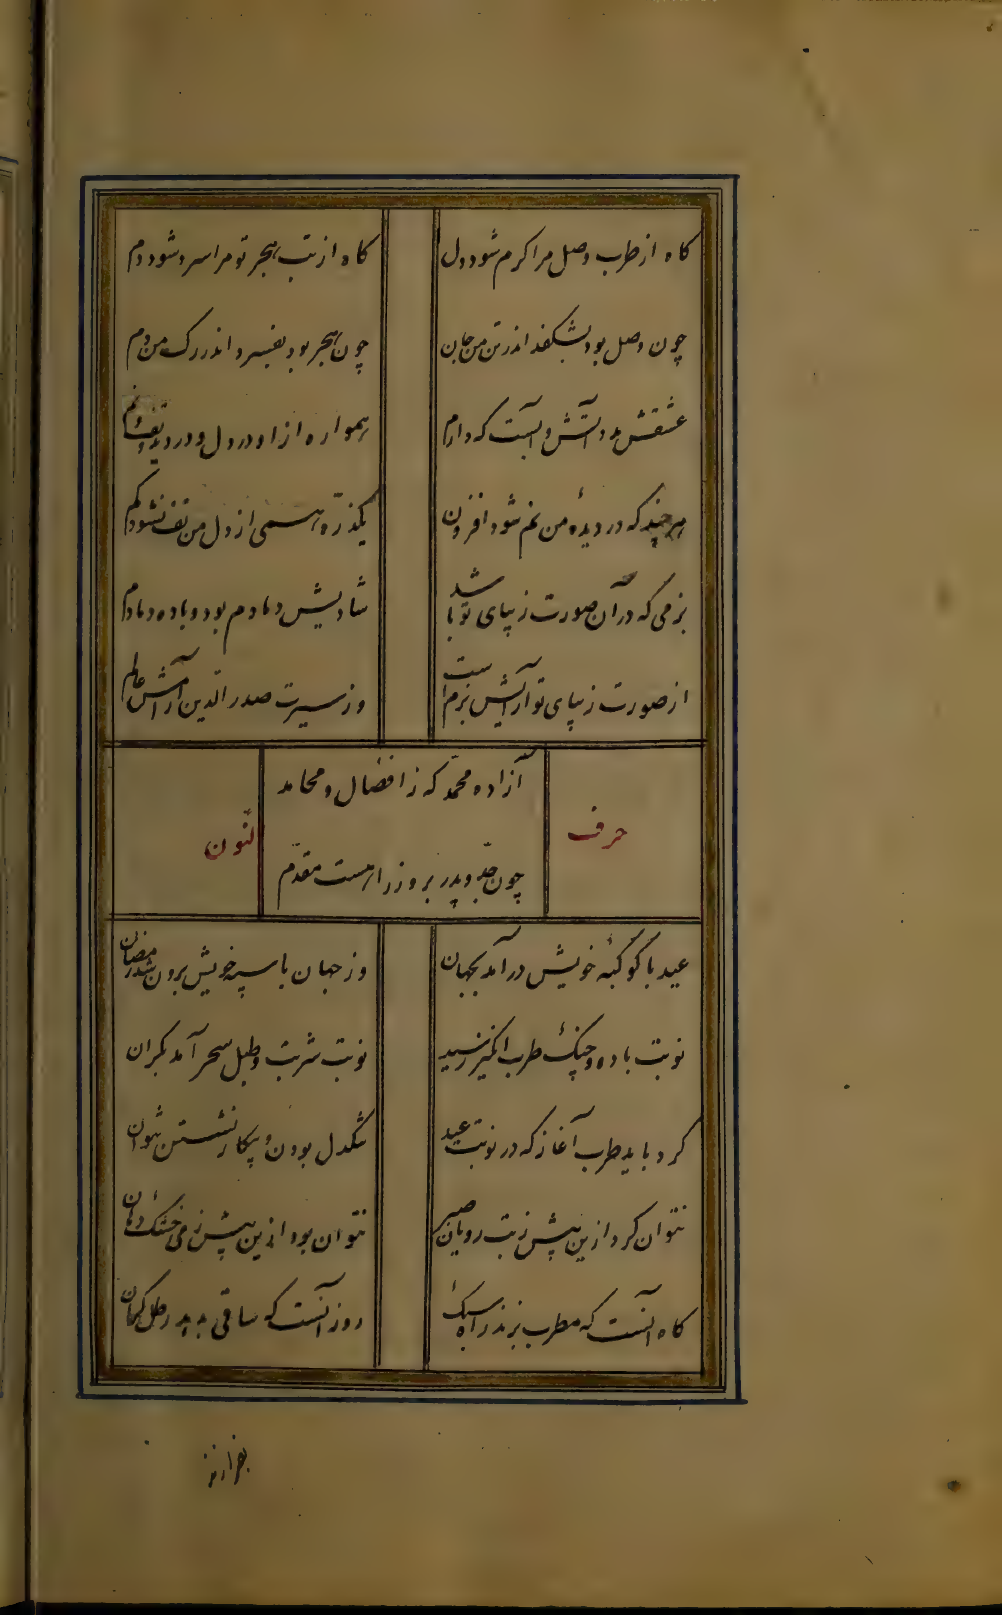 کاه از طرب وصل مرا کرم شود دل
کاه از تب هجر تو مرا سرد شود دم
چون وصل بود بشکفد اندر تن من جان
چون هجر بود بفسرد اندر رک من دم
عشقش بدو آتش و آبست که دارم
همواره ازاو در دل و در دیده تف و نم
هرچند که در دیدهٔ من نم شود افزون
یکذره همی از دل من تف نشود کم
بزمی که در آن صورت زیبای تو باشد
شادیش دمادم بود و باده دمادم
از صورت زیبای تو آرایش بزم است
وز سیرت صدر الدین آرامش عالم
آزاده محمد که ز افضال و محامد
حرف
النون
چون جد و پدر بر وزرا هست مقدم
عید با کوکبهٔ خویش در آمد بجهان
وز جهان با سپه خویش برون شد رمضان
نوبت باده و چنک طرب انکیز رسید
نوبت شربت و طبل سحر آمد بکران
کرد باید طرب آغاز که در نوبت عید
تنکدل بودن و بیکار نشستن نتوان
نتوان کرد ازین بیش ز بت رویان صبر
نتوان بود ازین بیش ز می خشک دهان
کاه آنست که مطرب بزند راه سبک
روز آنست که ساقی بدهد رطل کران